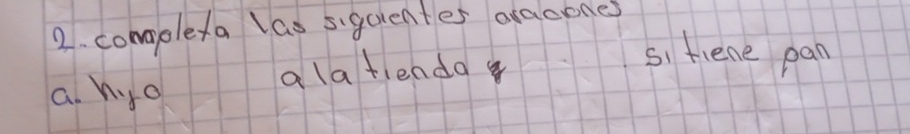 2. completa las siguientes oraciones
a. hijo a la tienda si tiene pan